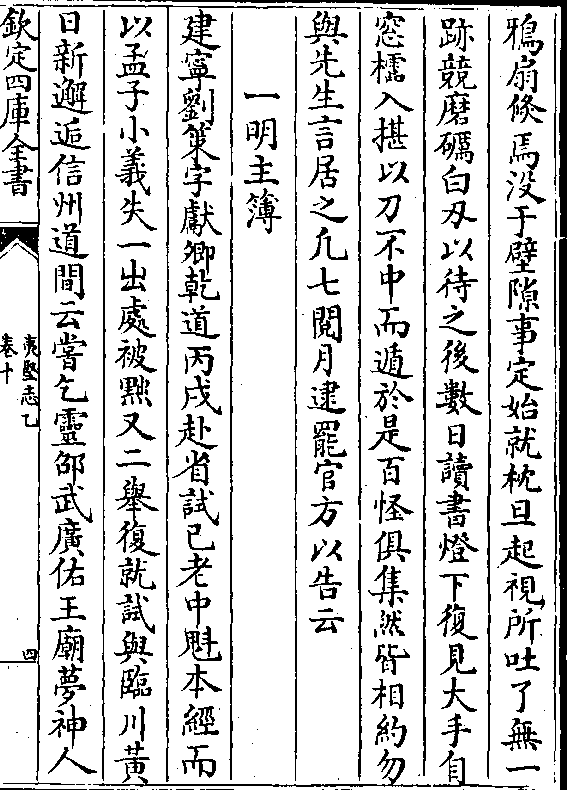 鴉扇倐焉没于壁隙事定始就枕旦起視所吐了無一
跡競磨礪白刄以待之後數日讀書燈下復見大手自
窓櫺入揕以刀不中而遁於是百怪俱集然皆相約勿
與先生言居之凡七閱月逮罷官方以告云
一明主簿
建寧劉䇿字獻卿乾道丙戌赴省試已老中魁本經而
以孟子小義失一出處被黜又二舉復就試與臨川黃
日新邂逅信州道間云嘗乞靈邵武廣佑王廟夢神人
欽定四庫全書
夷堅志乙
卷十
四